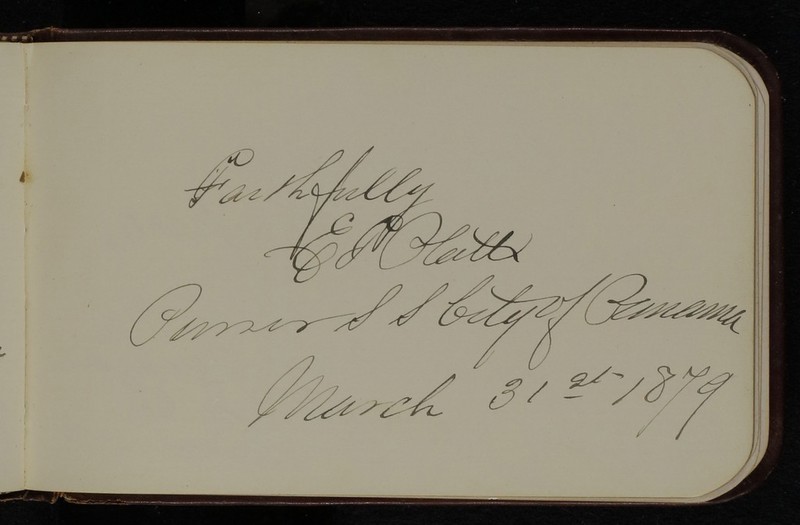 Faithfully
E P Platt
Purser S S City of Panama
March 31st 1879